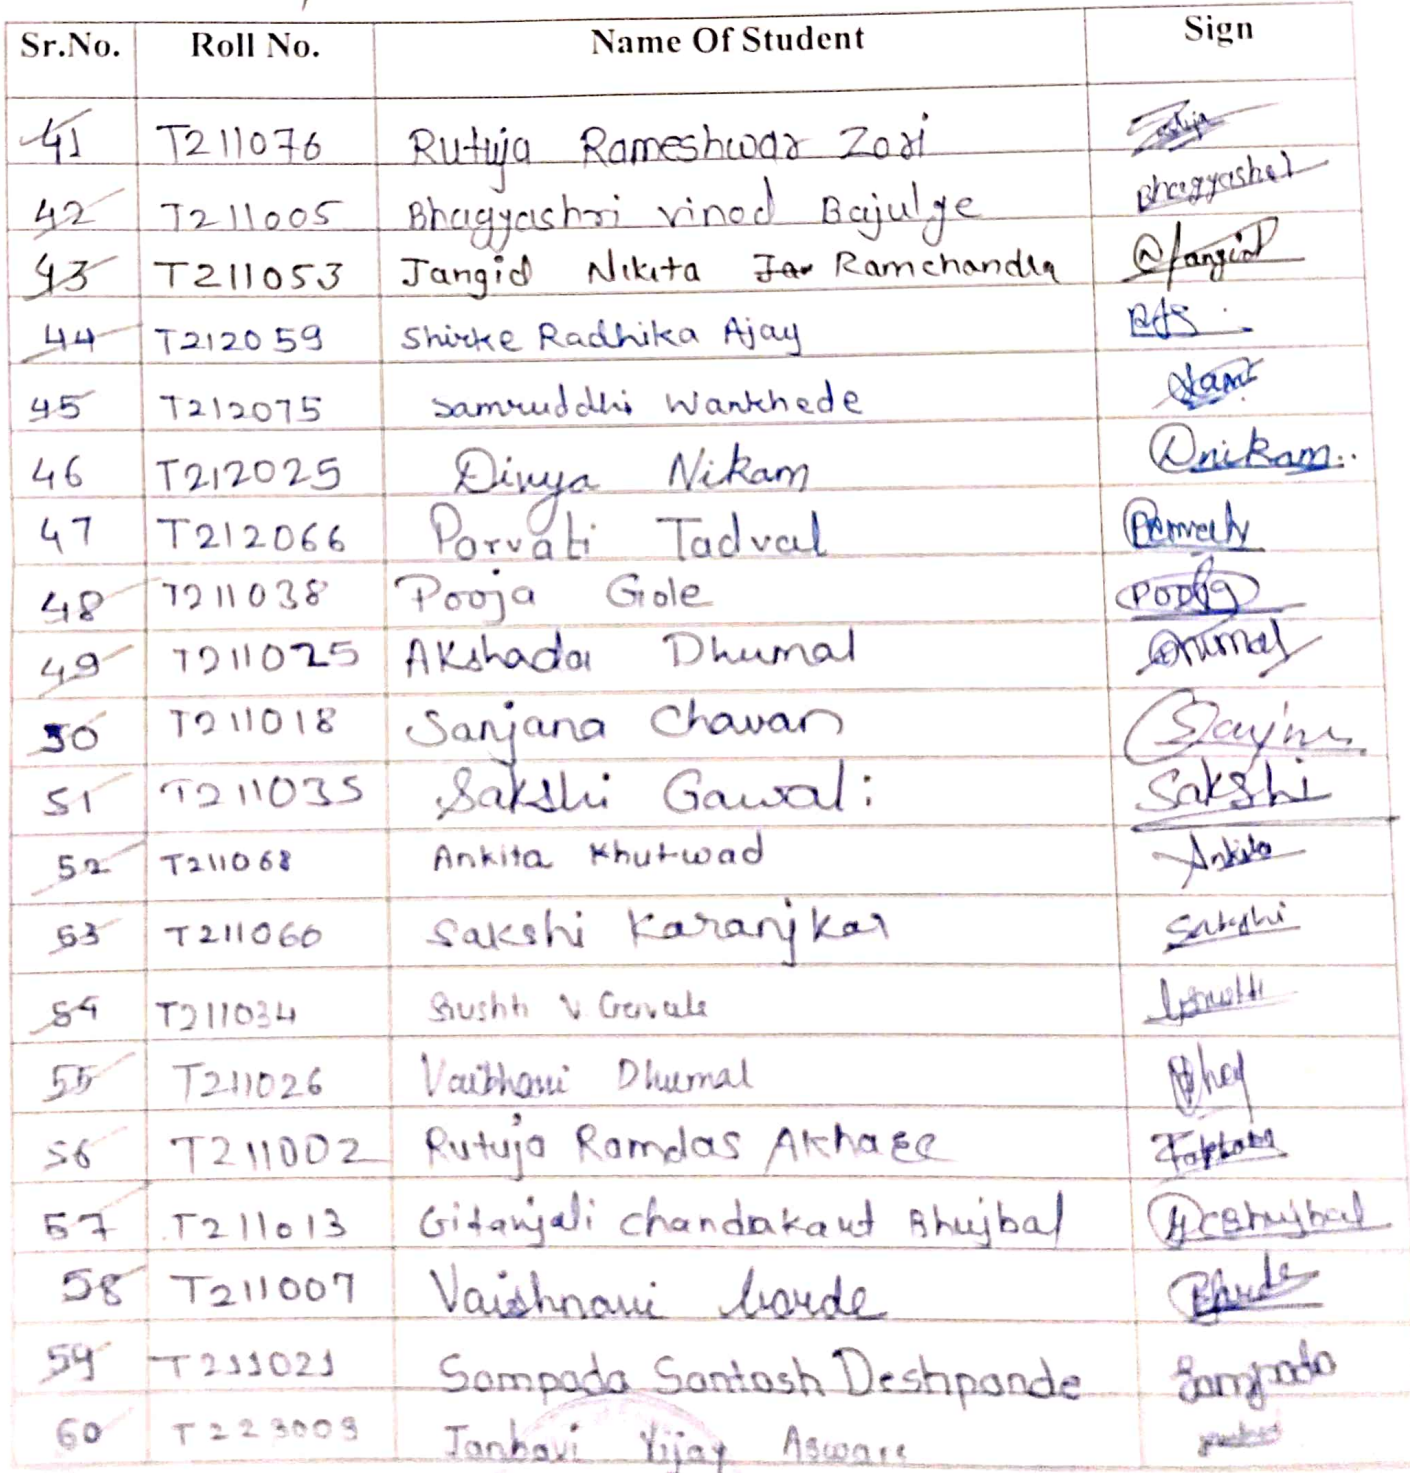 Sr.No. Roll No. Name Of Student Sign
41 T211076 Rutuja Rameshwar Zori
42 T211005 Bhagyashri vinod Bajulge Bhagyashri
43 T211053 Jangid Nikita Jan Ramchandra Jangid
44 T212059 Shirke Radhika Ajay
45 T212075 Samruddhi Wankhede
46 T212025 Divya Nikam Dnikam..
47 T212066 Parvati Tadval
48 T211038 Pooja Gole Pooja
49 T211025 Akshada Dhumal
50 T211018 Sanjana Chavan
51 T211035 Sakshi Gawal: Sakshi
52 T211068 Ankita Khutwad Ankita
53 T211060 Sakshi Karanjkar Sakshi
54 T211034 V.
55 T211026 Vaibhavi Dhumal
56 T211002 Rutuja Ramdas Akhare
57 T211013 Gitanjali Chandrakant Bhujbal
58 T211007 Vaishnavi
59 T211021 Sampada Santosh Deshpande Sampada
60 T223009 Janhavi Vijay Asware